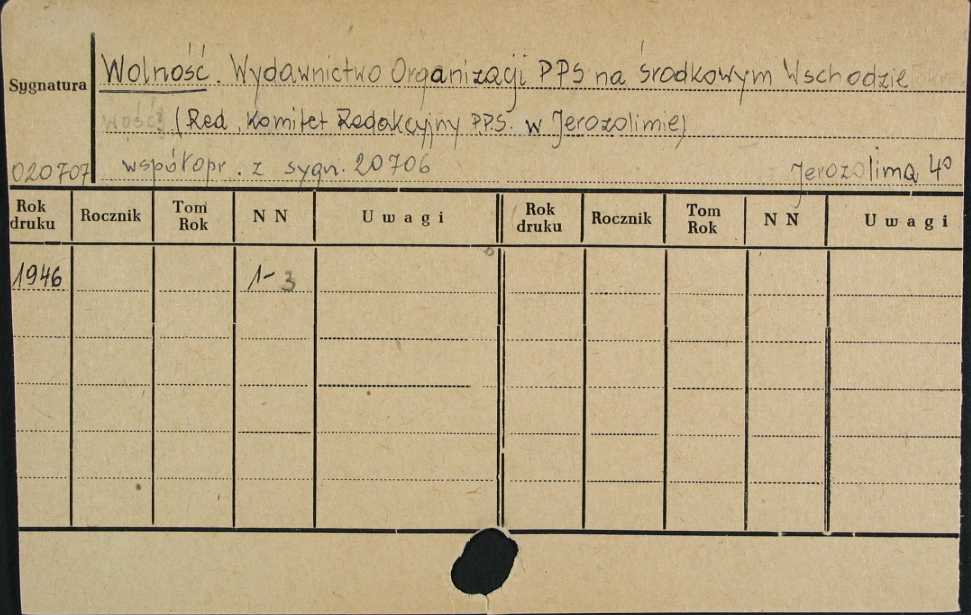 Sygnatura
Wolność. Wydawnictwo Organizacji PPS na Środkowym Wschodzie
(Red. Komitet Redakcyjny PPS. w Jerozolimie)
020707 współopr. z sygn. 20706 Jerozolima 4°
Rok druku Rocznik Tom Rok N N Uwagi Rok druku Rocznik Tom Rok N N Uwagi
1946 1-3